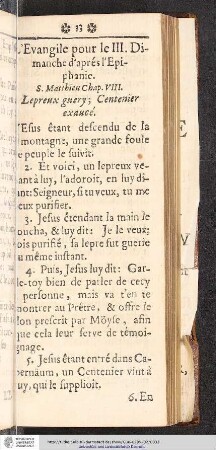 33
L'Evangile pour le III. Di-
manche d'aprés l'Epi-
phanie.
S. Matthieu Chap. VIII.
Lepreux guery; Centenier
exaucé.
Jesus étant descendu de la
montagne, une grande foule
de peuple le suivit.
2. Et voici, un lepreux ve-
nant à luy, l'adoroit, en luy di-
sant: Seigneur, si tu veux, tu me
peux purifier.
3. Jesus étendant la main le
toucha, & luy dit: Je le veux;
sois purifié, sa lepre fut guerie
au même instant.
4. Puis, Jesus luy dit: Gar-
de-toy bien de parler de cecy
à personne, mais va t'en te
montrer au Prêtre, & offre le
don prescrit par Möyse, afin
que cela leur serve de témoi-
gnage.
5. Jesus étant entré dans Ca-
pernäum, un Centenier vint à
luy, qui le supplioit.
6. En